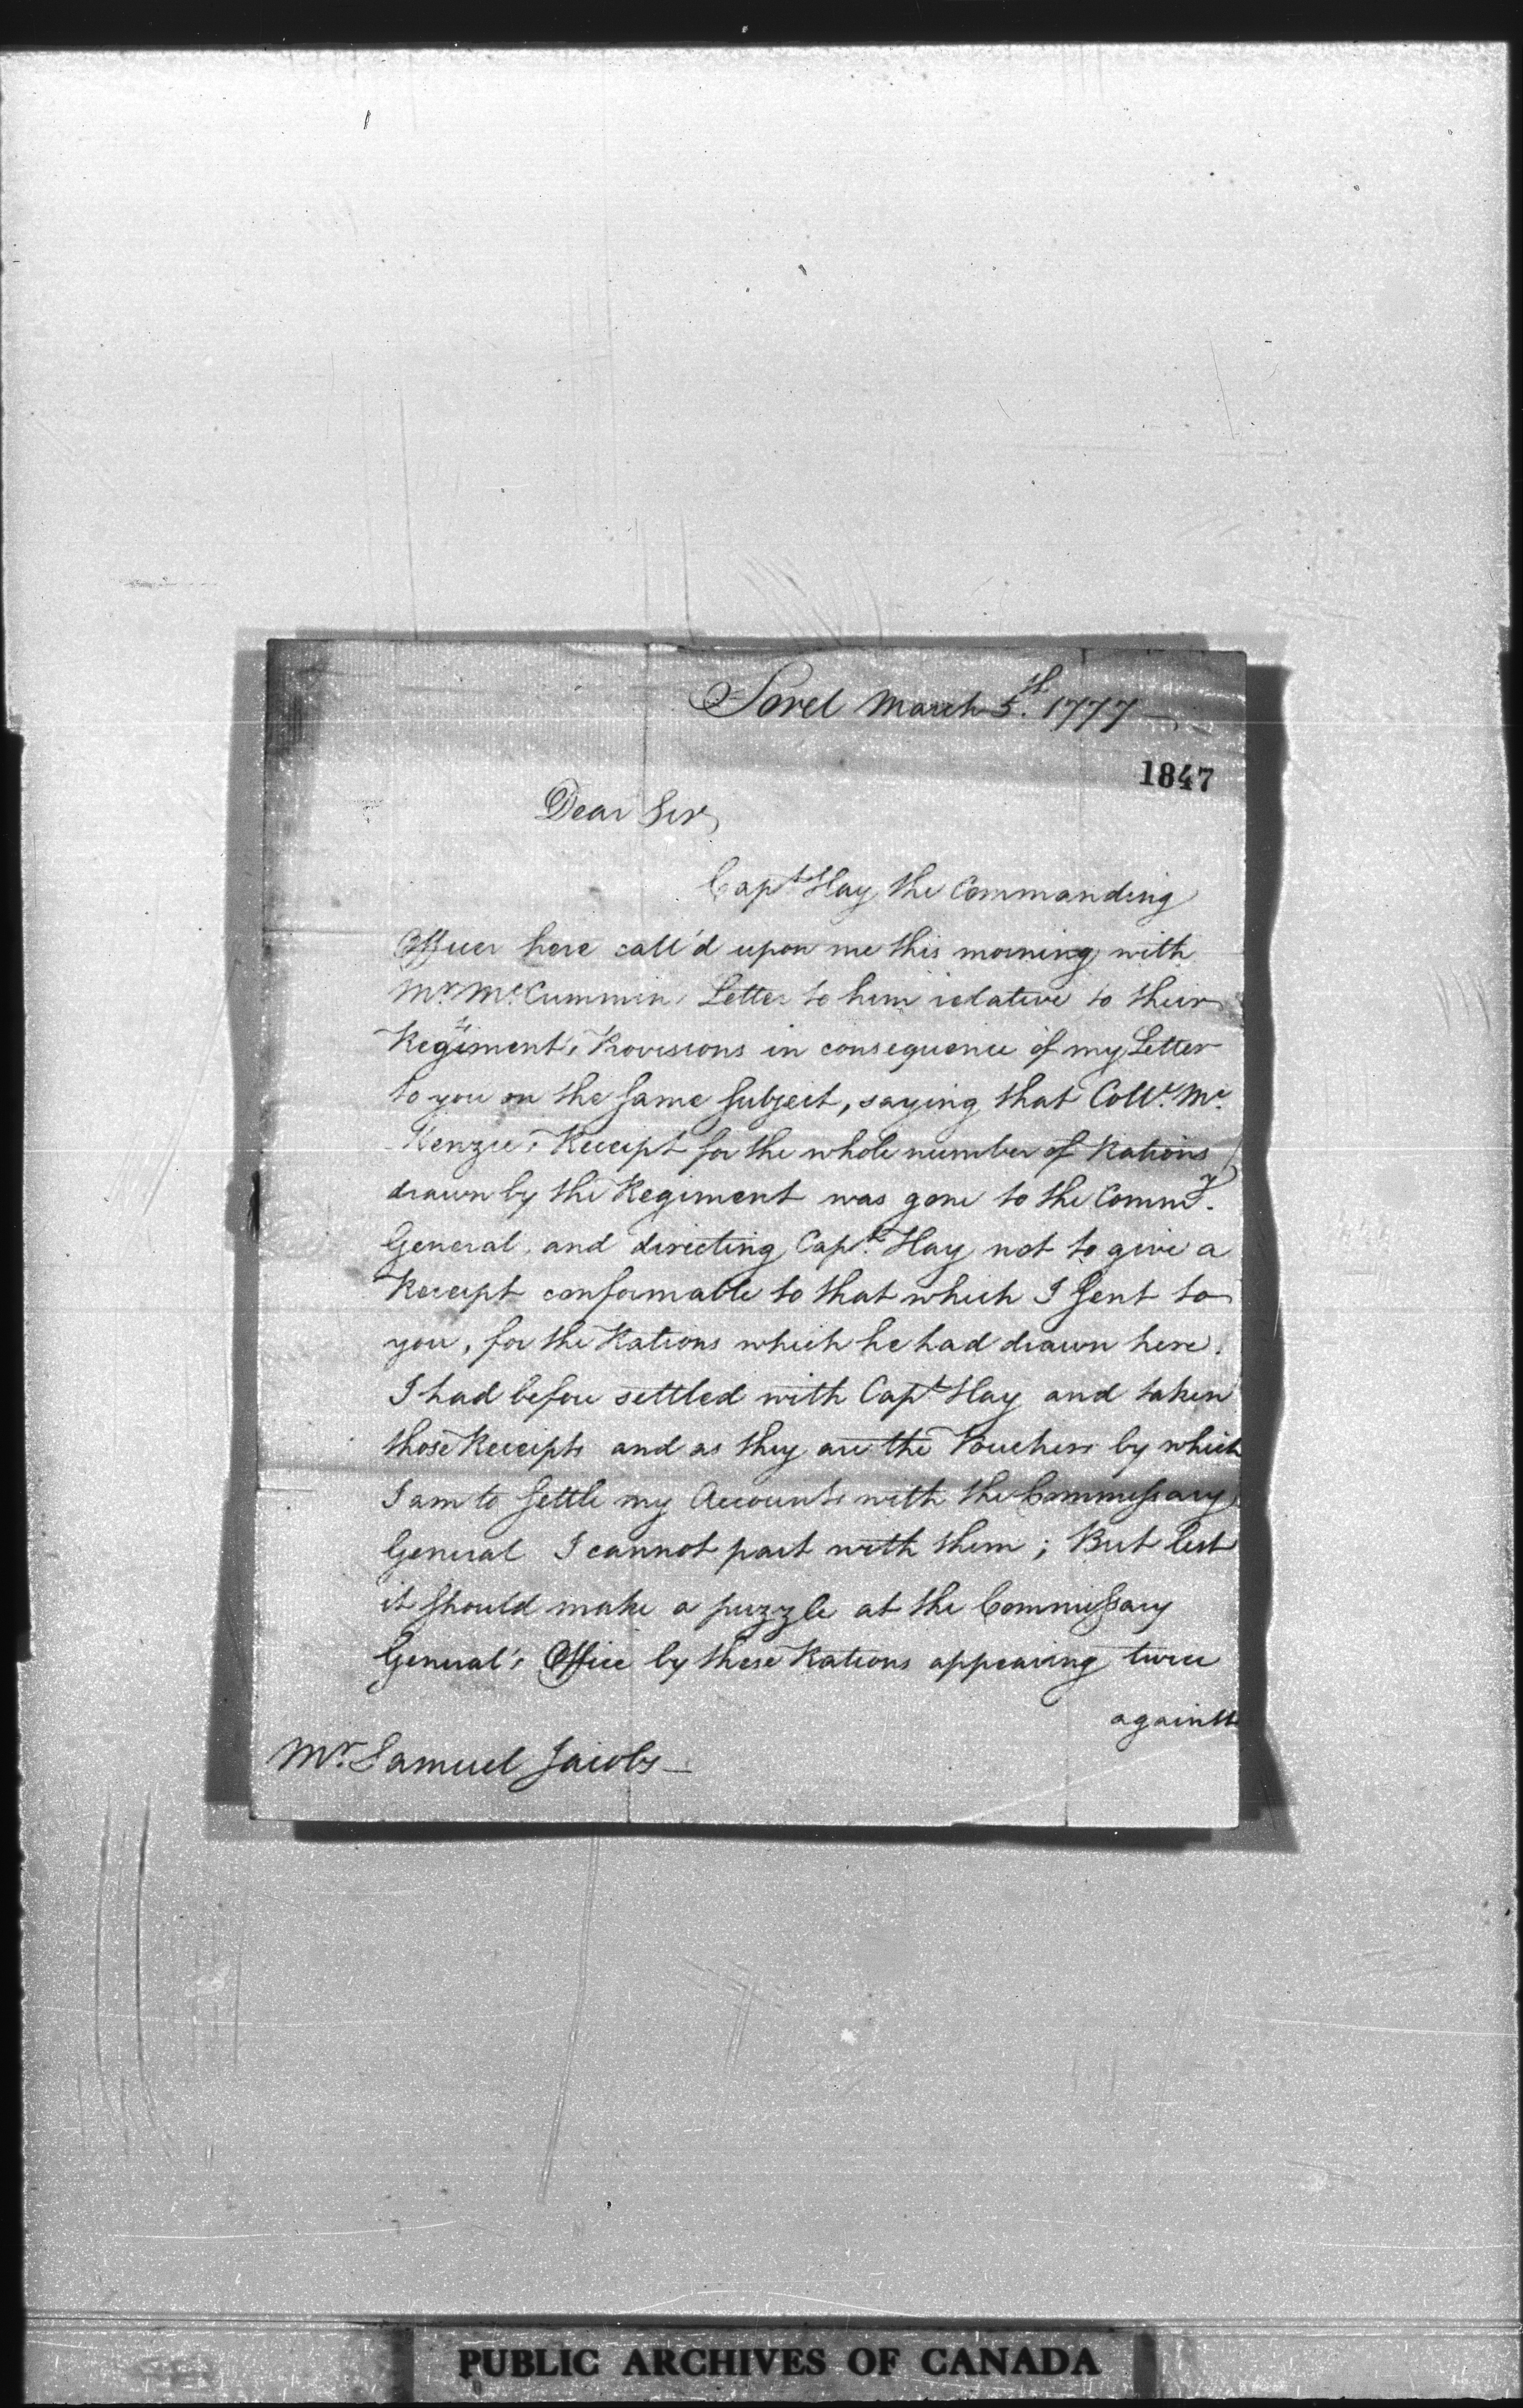 Sorel March 5th. 1777
1847
Dear Sir,
Capt Hay the Commanding
Officer here call'd upon me this morning with
Mr. Mc.Cummin's Letter to him relative to their
Regiment's Provisions in consequence of my Letter
to you on the same subject, saying that Coll. Mc.
Kenzie's Receipt for the whole number of Rations
drawn by the Regiment was gone to the Commy.
General, and directing Capt. Hay not to give a
Receipt conformable to that which I sent to
you, for the Rations which he had drawn here.
I had before settled with Capt Hay and taken
those Receipts and as they are the Vouchers by which
I am to settle my Accounts with the Commissary
General I cannot part with them; But lest
it should make a puzzle at the Commissary
General's Office by these Rations appearing twice
against
Mr. Samuel Jacobs
PUBLIC ARCHIVES OF CANADA